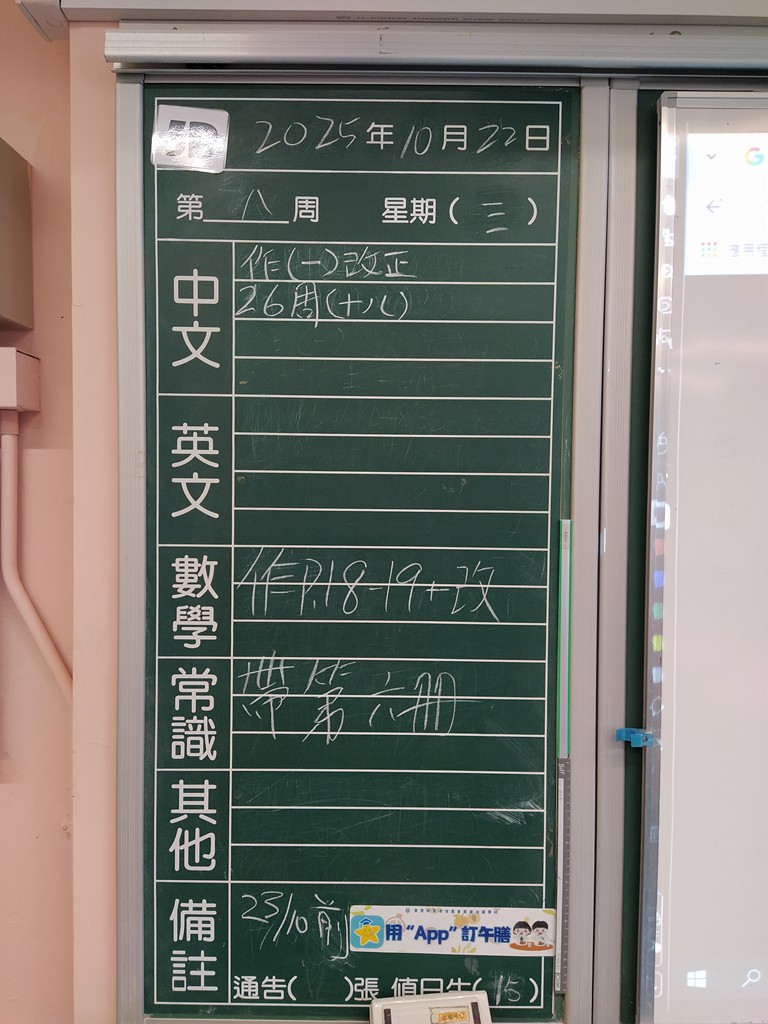 5B
2025年10月22日
第八周 星期(三)
中文
作(一)改正
26周(十八)
英文
數學
作P.18-19+改
常識
帶第六冊
其他
備註
23/10前
用“App”訂午膳
通告( )張 值日生(15)